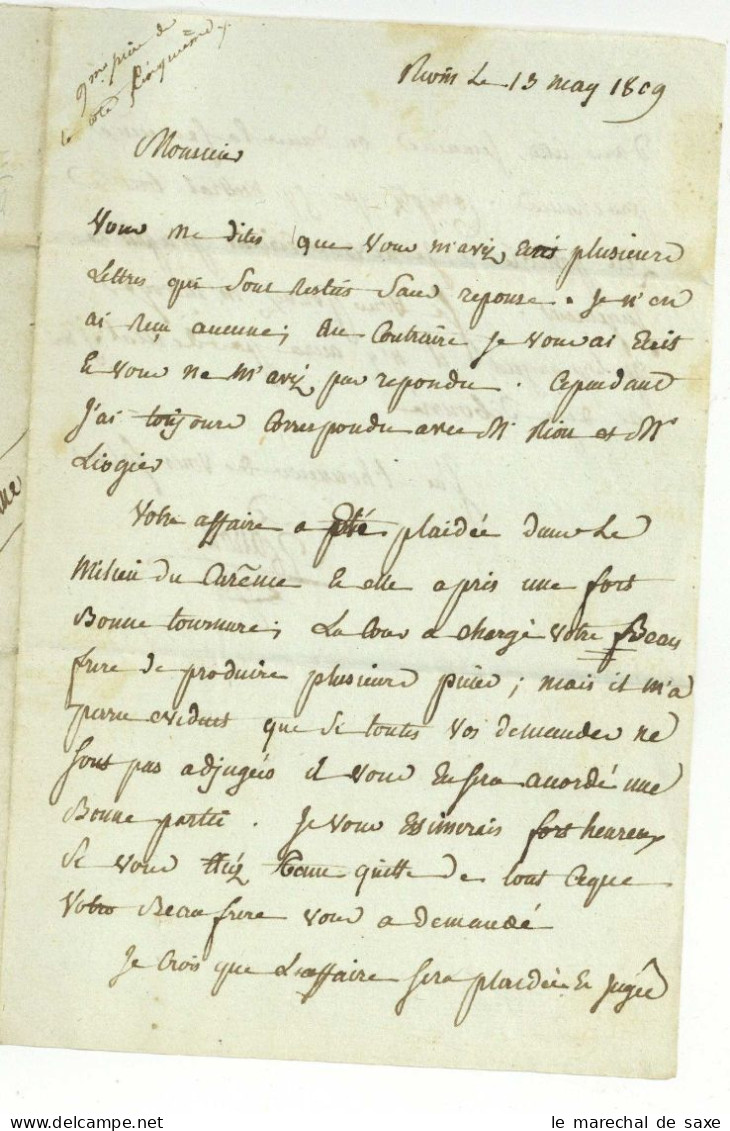 9me pièce de
la cote cinquième
Riom Le 13 may 1809
Monsieur
Vous me dites que Vous m'aviz Ecris plusieurs
Lettres qui sont Restés sans reponse. Je n'en
ai Reçu aucune; Au Contraire je Vous ai Ecrit
Et Vous ne M'aviz pas repondu. Cependant
J'ai toujours Correspondu avec Mr Riou et Mr
Liogier
Votre affaire a été plaidée dans Le
Milieu du Carême Et elle a pris une fort
Bonne tournure; La Cour a chargé Votre Beau
frere de produire plusieurs pièces; mais il m'a
paru evident que Si toutes Vos demandes ne
sont pas adjugées il Vous En sera accordé une
Bonne partie. Je Vous Estimerais fort heureux
Si Vous étiez tenu quitte de tout Ceque
Votre Beau frere Vous a demandé
Je Crois que L'affaire sera plaidée Et jugée
le marechal de saxe